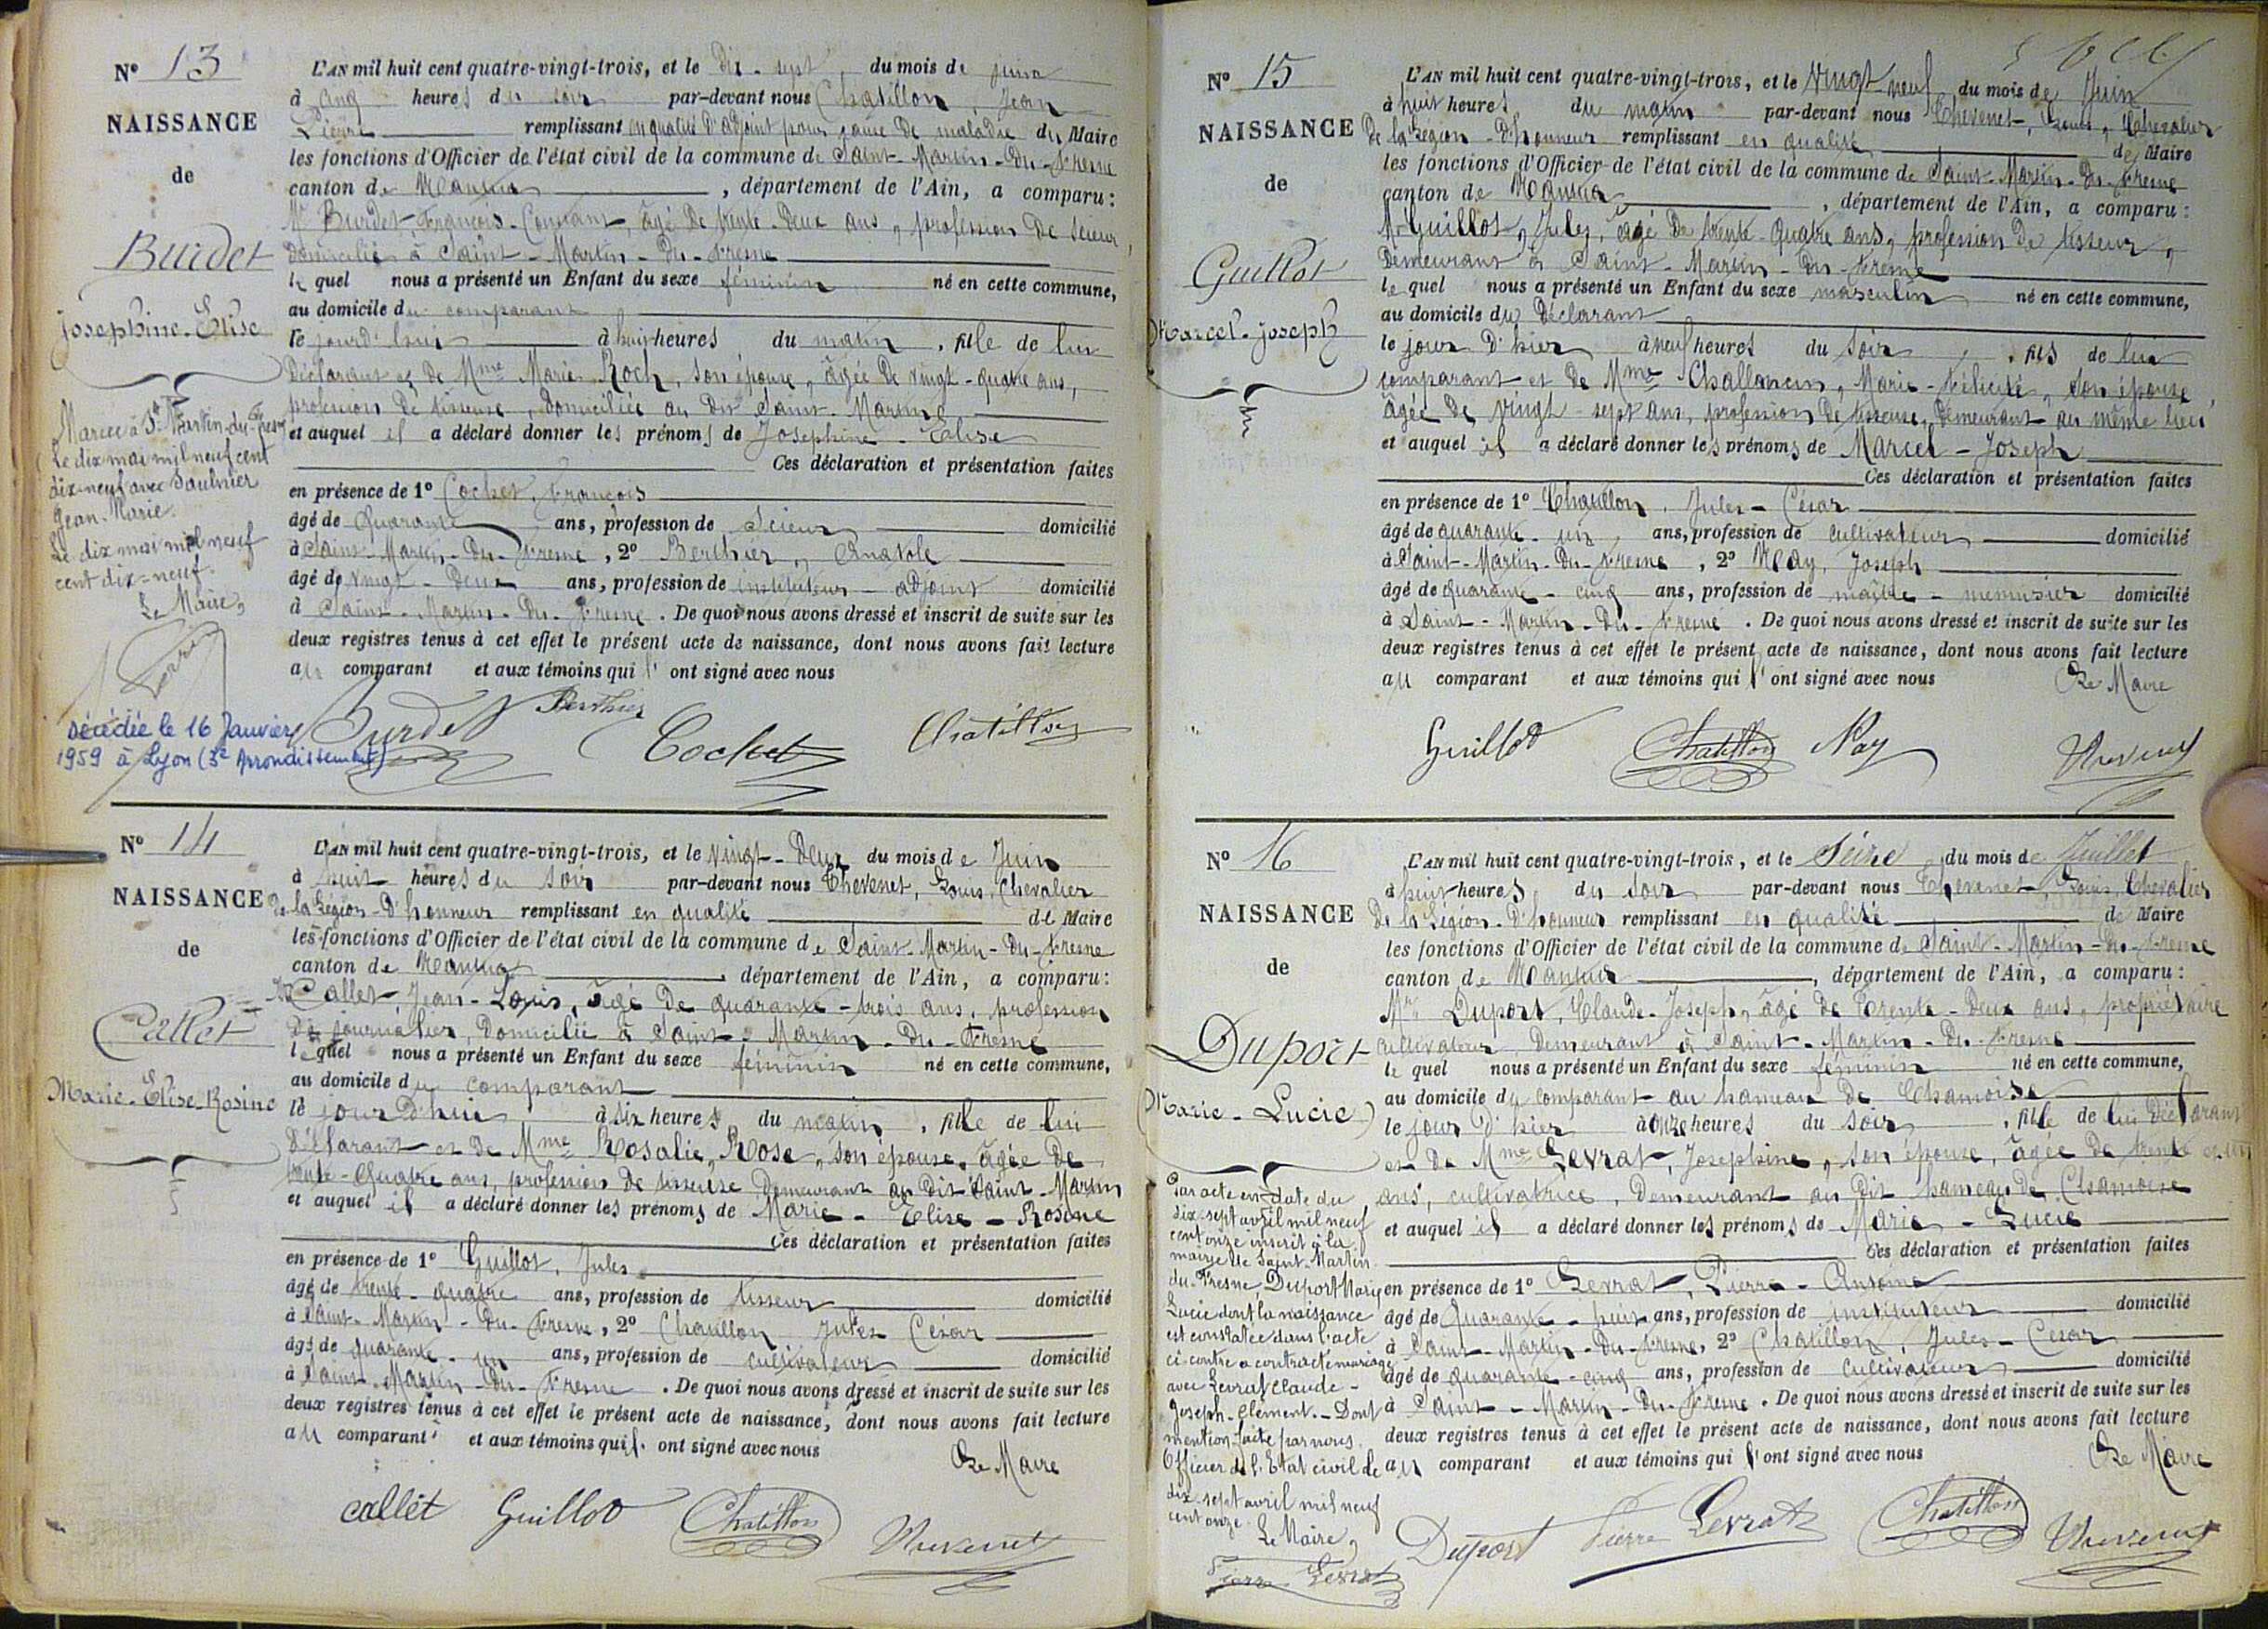 N° 13
NAISSANCE
de
Burdet
Josephine-Elise
Mariée à St Martin-du-Fresne
le dix mai mil neuf cent
dix-neuf avec Saulnier
Jean-Marie.
Le dix mai mil neuf
cent dix-neuf.
Le Maire,
Décédée le 16 Janvier
1959 à Lyon (3e Arrondissement)
L'AN mil huit cent quatre-vingt-trois, et le dix-sept du mois de juin
à cinq heures du soir par-devant nous Chatillon, Jean
Pierre remplissant en qualité d'adjoint pour cause de maladie du Maire
les fonctions d'Officier de l'état civil de la commune de Saint-Martin-du-Fresne
canton de Nantua, département de l'Ain, a comparu:
Mr Burdet, François-Constant, âgé de trente-deux ans, profession de scieur,
domicilié à Saint-Martin-du-Fresne
lequel nous a présenté un Enfant du sexe féminin né en cette commune,
au domicile du comparant
le jourd'hui à huit heures du matin, fille de lui
déclarant et de Mme Marie Roch, son épouse, âgée de vingt-quatre ans,
profession de tisseuse, domiciliée au dit Saint-Martin
et auquel il a déclaré donner les prénoms de Josephine-Elise
Ces déclaration et présentation faites
en présence de 1° Cochet, François
âgé de quarante ans, profession de scieur domicilié
à Saint-Martin-du-Fresne, 2° Berthier, Anatole
âgé de vingt-deux ans, profession de instituteur-adjoint domicilié
à Saint-Martin-du-Fresne. De quoi nous avons dressé et inscrit de suite sur les
deux registres tenus à cet effet le présent acte de naissance, dont nous avons fait lecture
au comparant et aux témoins qui l'ont signé avec nous
Burdet Berthier Cochet Chatillon
N° 14
NAISSANCE
de
Callet
Marie-Elise-Rosine
L'AN mil huit cent quatre-vingt-trois, et le vingt-deux du mois de Juin
à huit heures du soir par-devant nous Chevenet, Louis, Chevalier
de la Légion-d'honneur remplissant en qualité de Maire
les fonctions d'Officier de l'état civil de la commune de Saint-Martin-du-Fresne
canton de Nantua, département de l'Ain, a comparu:
Mr Callet, Jean-Louis, âgé de quarante-trois ans, profession
de journalier, domicilié à Saint-Martin-du-Fresne
lequel nous a présenté un Enfant du sexe féminin né en cette commune,
au domicile du comparant
le jour d'hui à dix heures du matin, fille de lui
déclarant et de Mme Rosalie, Rose, son épouse, âgée de
trente-quatre ans, profession de tisseuse demeurant au dit Saint-Martin
et auquel il a déclaré donner les prénoms de Marie-Elise-Rosine
Ces déclaration et présentation faites
en présence de 1° Guillot, Jules
âgé de trente-quatre ans, profession de tisseur domicilié
à Saint-Martin-du-Fresne, 2° Chatillon Jules César
âgé de quarante-un ans, profession de cultivateur domicilié
à Saint-Martin-du-Fresne. De quoi nous avons dressé et inscrit de suite sur les
deux registres tenus à cet effet le présent acte de naissance, dont nous avons fait lecture
au comparant et aux témoins qui l'ont signé avec nous
Le Maire
callet Guillot Chatillon Chevenet
N° 15
NAISSANCE
de
Guillot
Marcel-Joseph
L'AN mil huit cent quatre-vingt-trois, et le vingt neuf du mois de Juin
à huit heures du matin par-devant nous Chevenet, Louis, Chevalier
de la Légion-d'honneur remplissant en qualité de Maire
les fonctions d'Officier de l'état civil de la commune de Saint-Martin-du-Fresne
canton de Nantua, département de l'Ain, a comparu:
Mr Guillot, Jules, âgé de trente-quatre ans, profession de tisseur,
demeurant à Saint-Martin-du-Fresne
lequel nous a présenté un Enfant du sexe masculin né en cette commune,
au domicile du déclarant
le jour d'hier à neuf heures du soir, fils de lui
comparant et de Mme Challancin, Marie-Félicité, son épouse,
âgée de vingt-sept ans, profession de tisseuse, demeurant au même lieu
et auquel il a déclaré donner les prénoms de Marcel-Joseph
Ces déclaration et présentation faites
en présence de 1° Chatillon, Jules-César
âgé de quarante-un ans, profession de cultivateur domicilié
à Saint-Martin-du-Fresne, 2° Nay, Joseph
âgé de quarante-cinq ans, profession de maître-menuisier domicilié
à Saint-Martin-du-Fresne. De quoi nous avons dressé et inscrit de suite sur les
deux registres tenus à cet effet le présent acte de naissance, dont nous avons fait lecture
au comparant et aux témoins qui l'ont signé avec nous
Le Maire
Guillot Chatillon Nay Chevenet
N° 16
NAISSANCE
de
Duport
Marie-Lucie
Par acte en date du
dix-sept avril mil neuf
cent onze inscrit à la
mairie de Saint-Martin
du-Fresne, Duport Marie
Lucie dont la naissance
est constatée dans l'acte
ci-contre a contracté mariage
avec Levrat Claude-
Joseph-Clément.-Dont
mention faite par nous,
Officier de l'Etat civil le
dix-sept avril mil neuf
cent onze.
Le Maire,
Pierre Levrat
L'AN mil huit cent quatre-vingt-trois, et le Seize du mois de Juillet
à huit heures du soir par-devant nous Chevenet, Louis, Chevalier
de la Légion-d'honneur remplissant en qualité de Maire
les fonctions d'Officier de l'état civil de la commune de Saint-Martin-du-Fresne
canton de Nantua, département de l'Ain, a comparu:
Mr Duport, Claude-Joseph, âgé de trente-deux ans, propriétaire
cultivateur, demeurant à Saint-Martin-du-Fresne
lequel nous a présenté un Enfant du sexe féminin né en cette commune,
au domicile du comparant au hameau de Chamoise
le jour d'hier à onze heures du soir, fille de lui déclarant
et de Mme Levrat, Josephine, son épouse, âgée de trente et un
ans, cultivatrice, demeurant au dit hameau de Chamoise
et auquel il a déclaré donner les prénoms de Marie-Lucie
Ces déclaration et présentation faites
en présence de 1° Levrat, Pierre-Antoine
âgé de quarante-huit ans, profession de instituteur domicilié
à Saint-Martin-du-Fresne, 2° Chatillon, Jules-César
âgé de quarante-cinq ans, profession de cultivateur domicilié
à Saint-Martin-du-Fresne. De quoi nous avons dressé et inscrit de suite sur les
deux registres tenus à cet effet le présent acte de naissance, dont nous avons fait lecture
au comparant et aux témoins qui l'ont signé avec nous
Le Maire
Duport Pierre Levrat Chatillon Chevenet